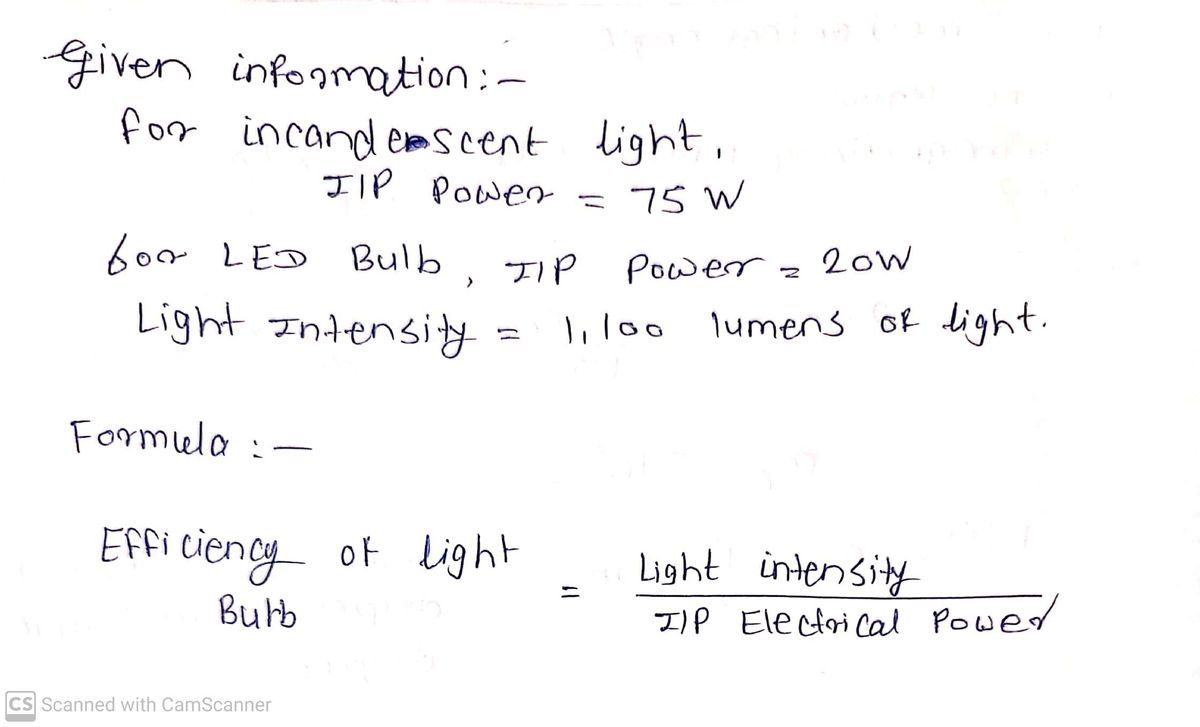 Given information:-
for incandescent light,
I/P Power = 75 W
for LED Bulb, I/P Power = 20W
Light Intensity = 1,100 lumens of light.
Formula :-
Efficiency of light Bulb = Light intensity / I/P Electrical Power
CS Scanned with CamScanner